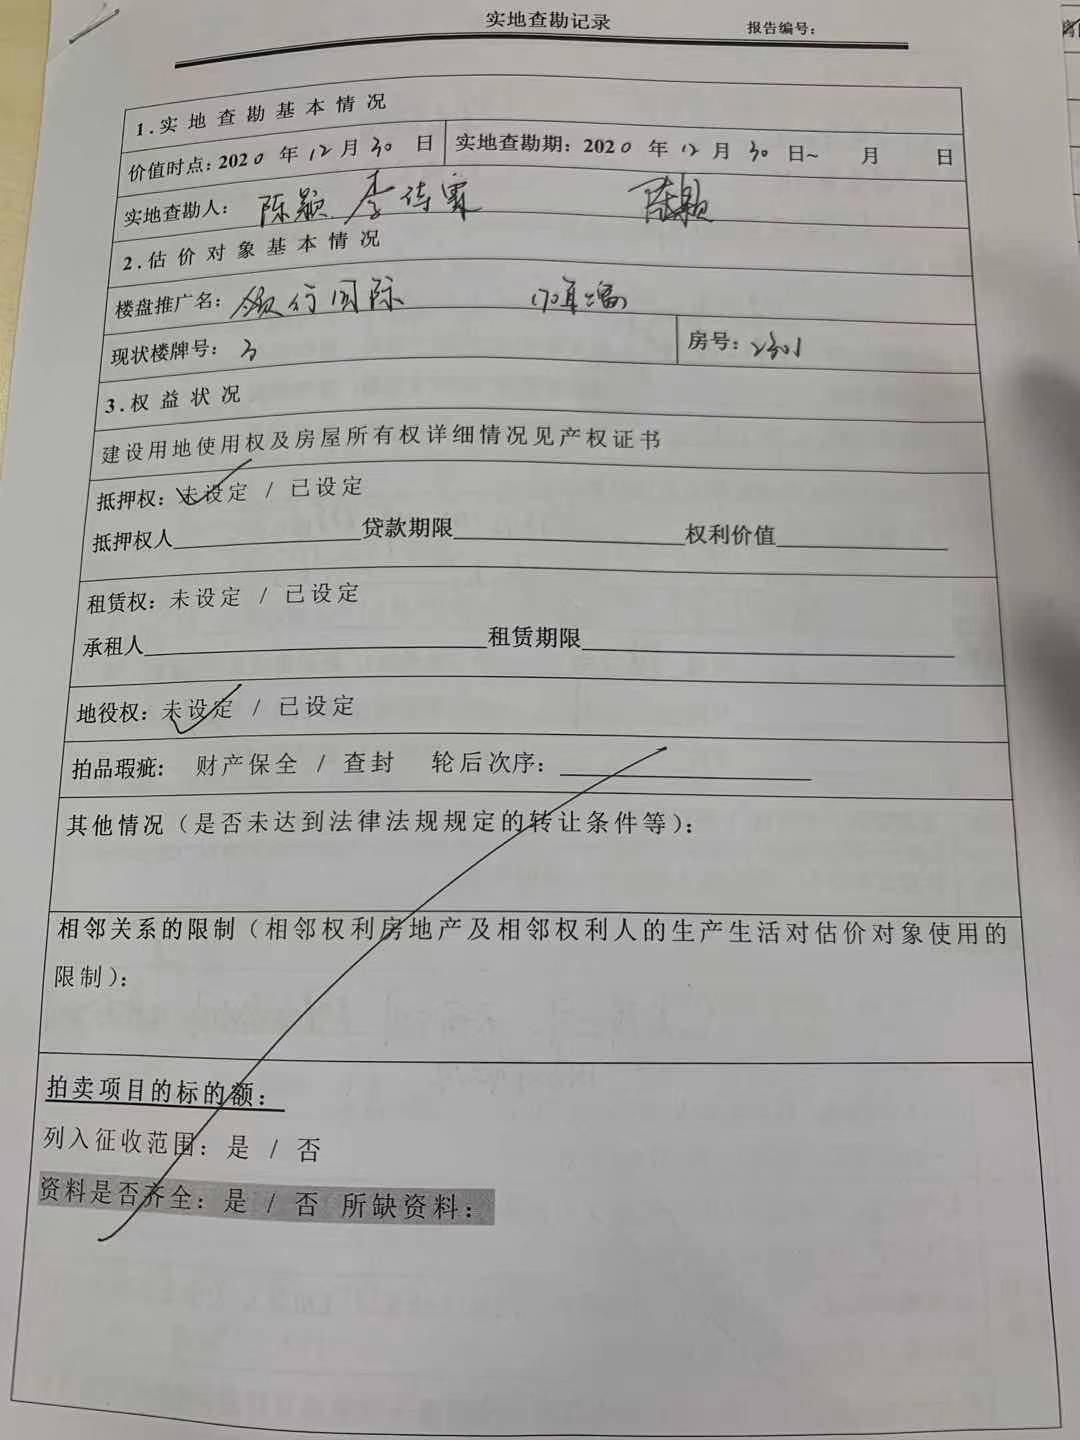 实地查勘记录
报告编号：
1.实地查勘基本情况
价值时点：2020 年 12 月 30 日 实地查勘期：2020 年 12 月 30 日~ 月 日
实地查勘人： 陈颖 李诗 陈颖
2.估价对象基本情况
楼盘推广名： 领行国际
现状楼牌号： 3 房号：2301
3.权益状况
建设用地使用权及房屋所有权详细情况见产权证书
抵押权：未设定 / 已设定
抵押权人 贷款期限 权利价值
租赁权：未设定 / 已设定
承租人 租赁期限
地役权：未设定 / 已设定
拍品瑕疵： 财产保全 / 查封 轮后次序：
其他情况（是否未达到法律法规规定的转让条件等）：
相邻关系的限制（相邻权利房地产及相邻权利人的生产生活对估价对象使用的
限制）：
拍卖项目的标的额：
列入征收范围：是 / 否
资料是否齐全：是 / 否 所缺资料：